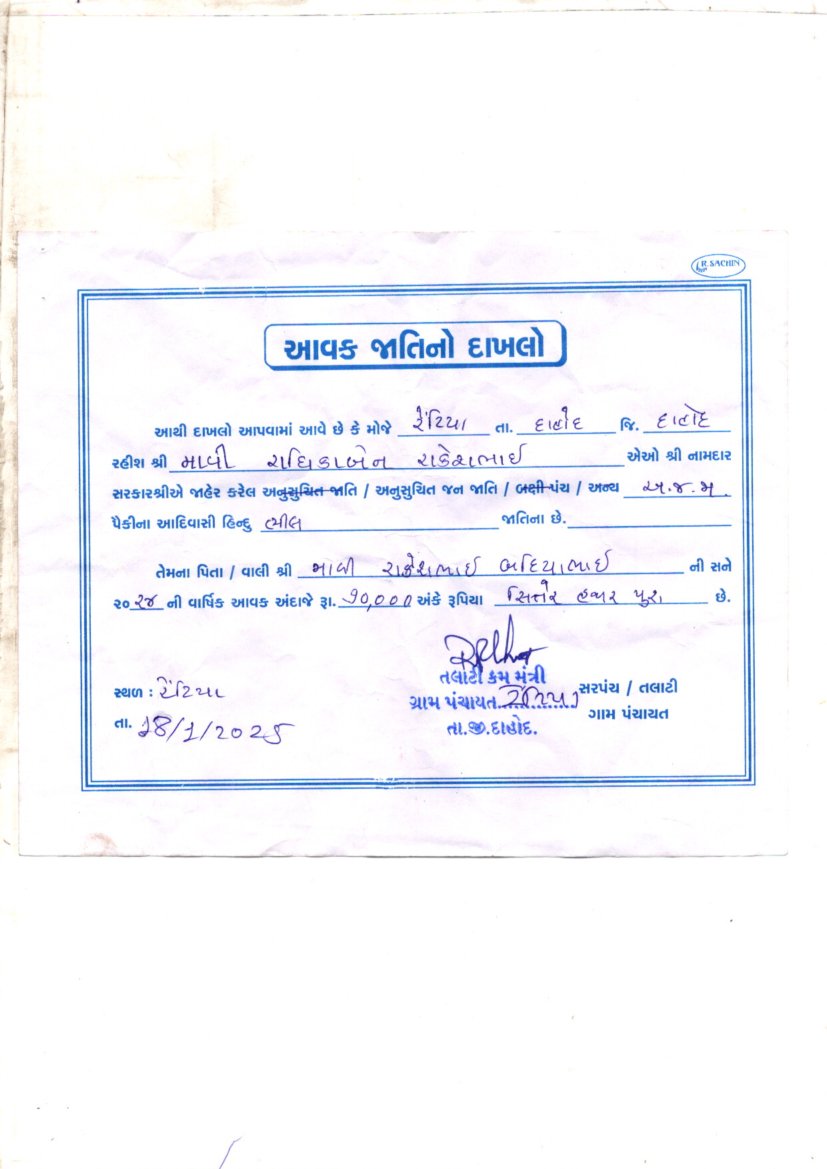 R.SACHIN
આવક જાતિનો દાખલો
આથી દાખલો આપવામાં આવે છે કે મોજે રેંટિયા તા. દાહોદ જિ. દાહોદ
રહીશ શ્રી માવી રાધિકાબેન રાકેશભાઈ એઓ શ્રી નામદાર
સરકારશ્રીએ જાહેર કરેલ અનુસુચિત જાતિ / અનુસુચિત જન જાતિ / બક્ષી પંચ / અન્ય અ.જ.જા.
પૈકીના આદિવાસી હિન્દુ ભીલ જાતિના છે.
તેમના પિતા / વાલી શ્રી માવી રાકેશભાઈ બદિયાભાઈ ની સને
૨૦૨૪ ની વાર્ષિક આવક અંદાજે રૂા. ૭૦,૦૦૦ અંકે રૂપિયા સિત્તેર હજાર પુરા છે.
તલાટી કમ મંત્રી
સ્થળ : રેંટિયા ગ્રામ પંચાયત રેંટિયા સરપંચ / તલાટી
તા. 18/1/2025 તા.જી.દાહોદ. ગામ પંચાયત